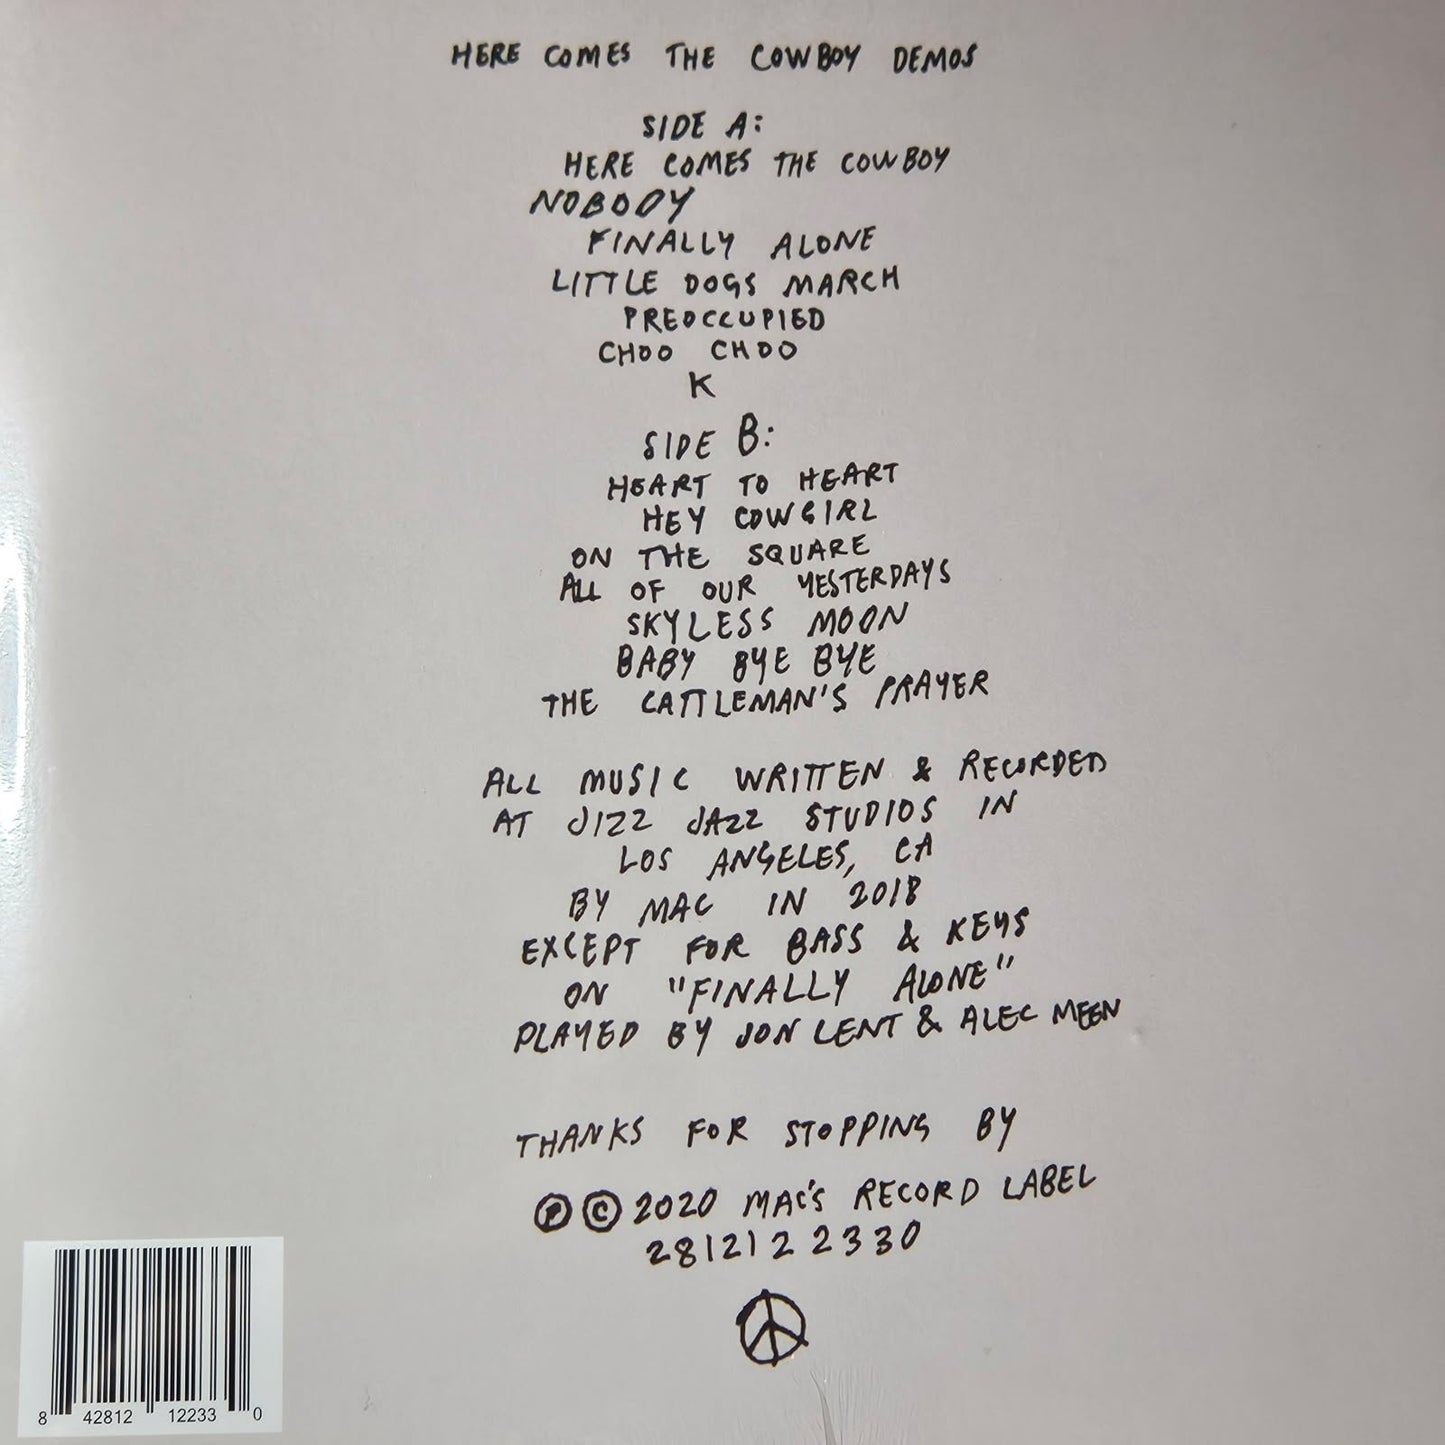 HERE COMES THE COWBOY DEMOS
SIDE A:
HERE COMES THE COWBOY
NOBODY
FINALLY ALONE
LITTLE DOGS MARCH
PREOCCUPIED
CHOO CHOO
K
SIDE B:
HEART TO HEART
HEY COWGIRL
ON THE SQUARE
ALL OF OUR YESTERDAYS
SKYLESS MOON
BABY BYE BYE
THE CATTLEMAN'S PRAYER
ALL MUSIC WRITTEN & RECORDED
AT JIZZ JAZZ STUDIOS IN
LOS ANGELES, CA
BY MAC IN 2018
EXCEPT FOR BASS & KEYS
ON "FINALLY ALONE"
PLAYED BY JON LENT & ALEC MEEN
THANKS FOR STOPPING BY
℗ © 2020 MAC'S RECORD LABEL
2812122330
8 42812 12233 0